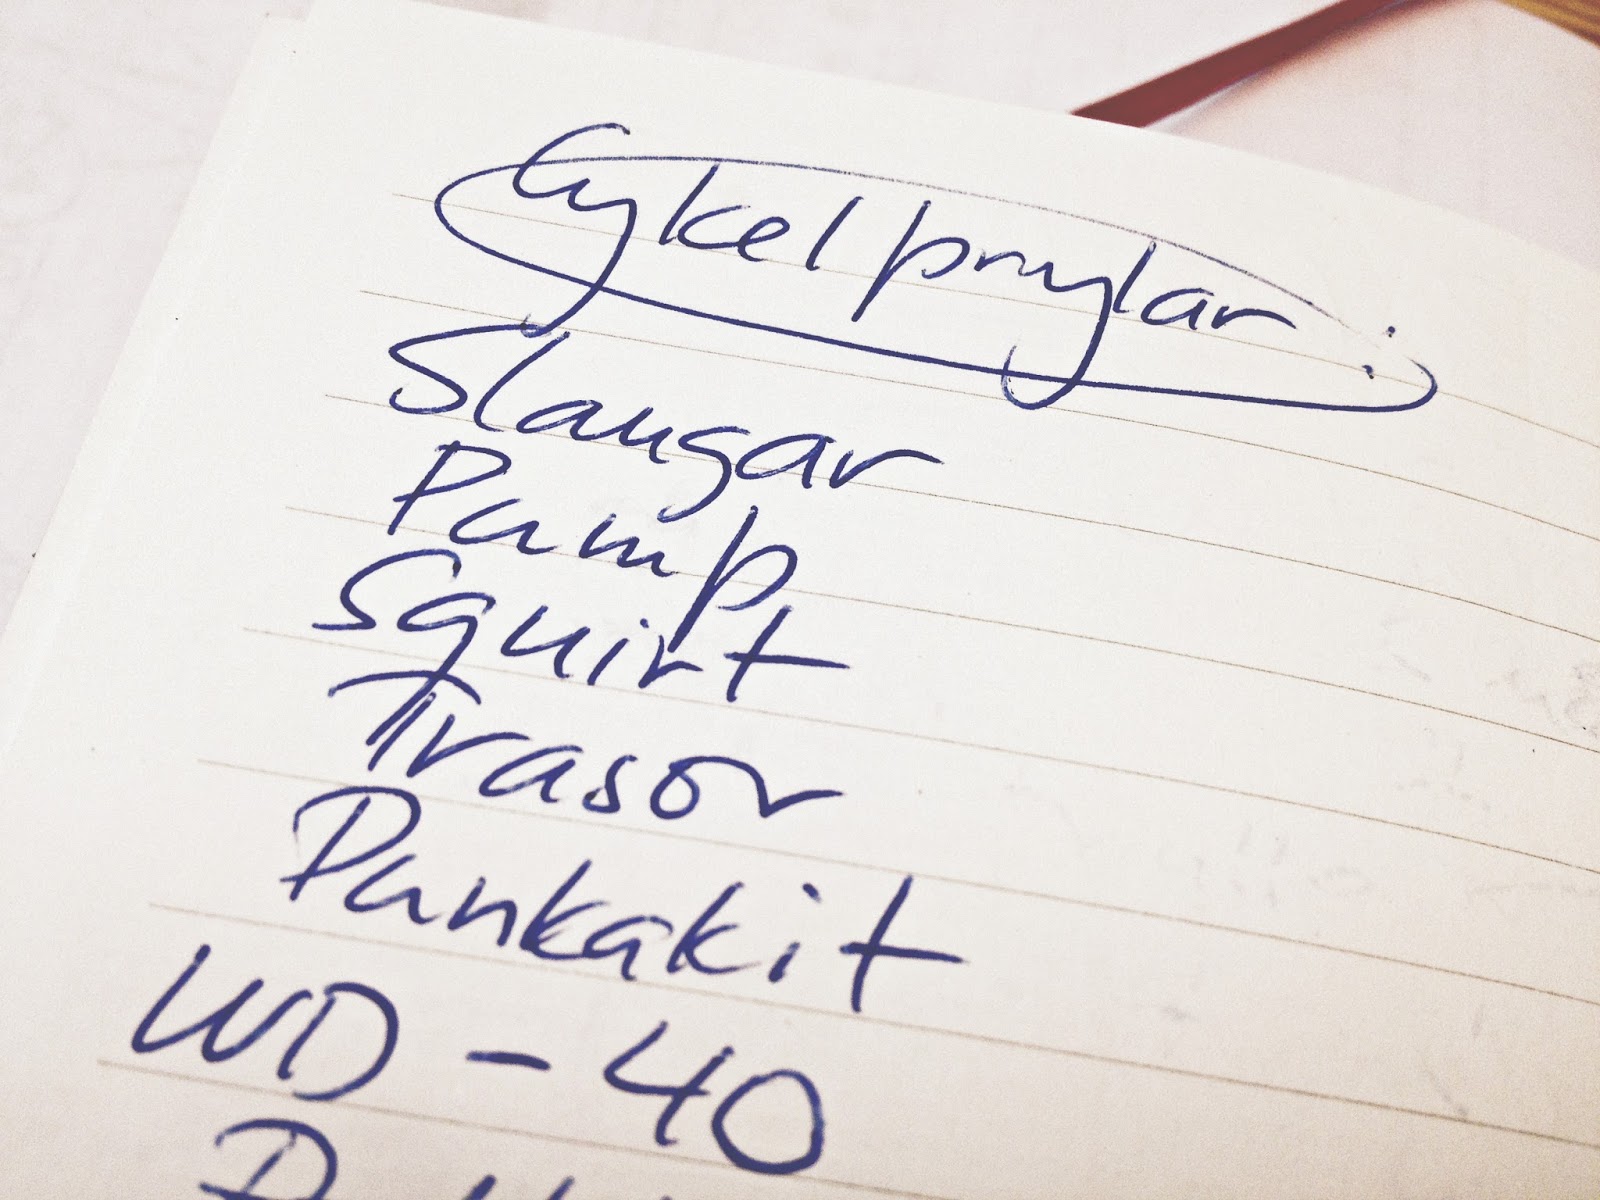 Cykelprylar:
Slangar
Pump
Squirt
Trasor
Punkakit
WD-40